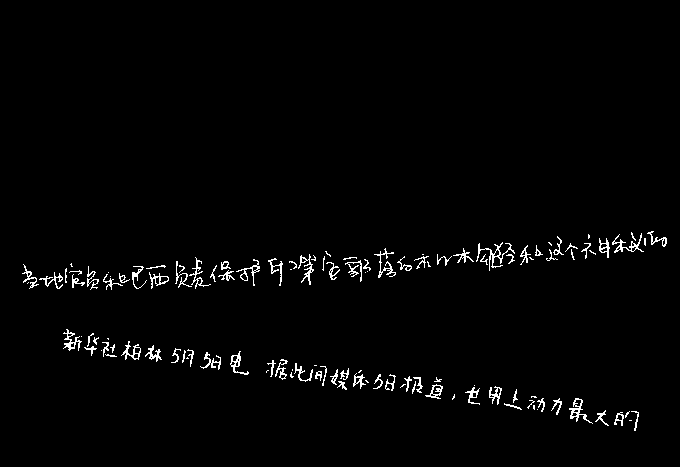 当地官员和巴西负责保护印第安部落的机构已经和这个神秘的
新华社柏林5月5日电 据此间媒体5日报道，世界上动力最大的